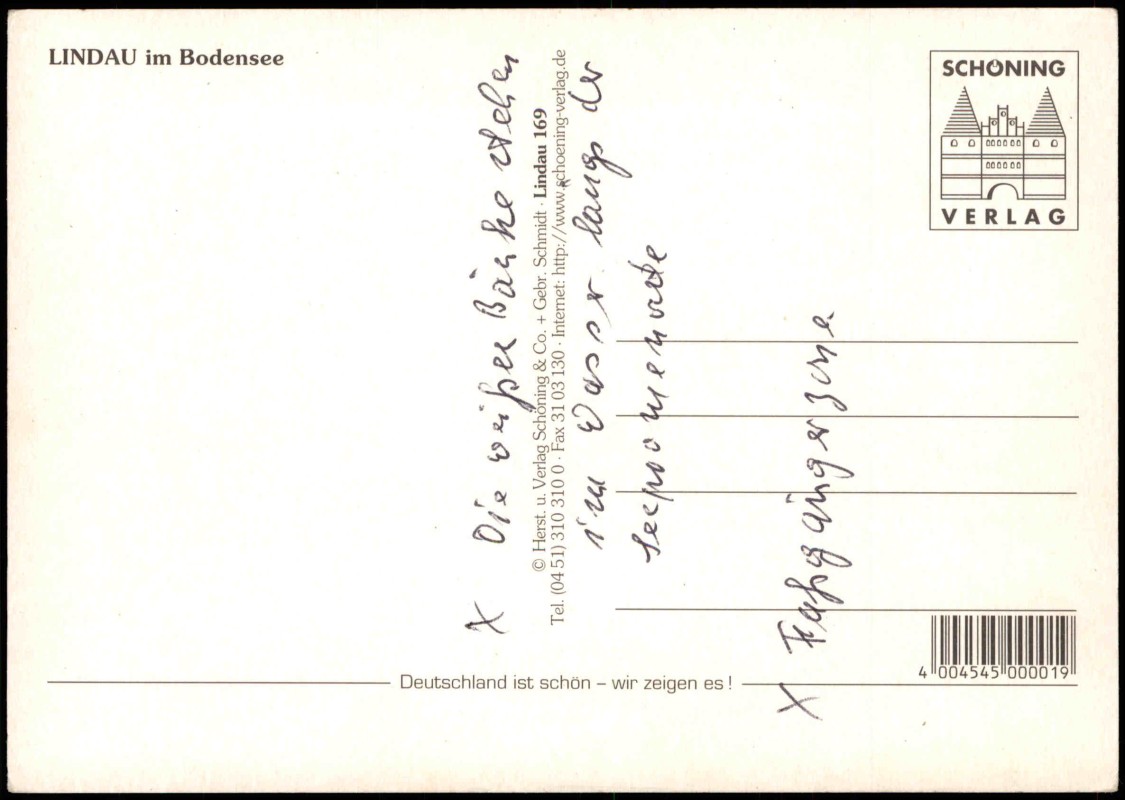 LINDAU im Bodensee
SCHÖNING
VERLAG
X Die weißen Bänke stehen
© Herst. u. Verlag Schöning & Co. + Gebr. Schmidt · Lindau 169
Tel. (04 51) 310 310 0 · Fax 31 03 130 · Internet: http://www.schoening-verlag.de
im Wasser längs der
Seepromenade
X Fußgängerzone
4 004545 000019
Deutschland ist schön – wir zeigen es !